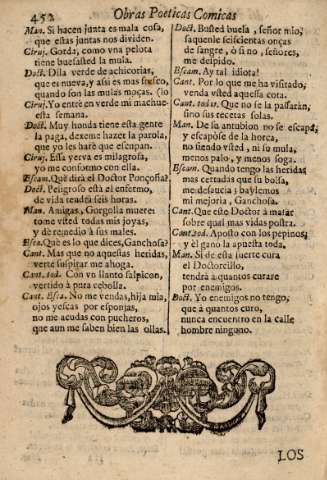 452 Obras Poeticas Comicas
Man. Si hacen junta es mala cosa,
que estas juntas nos dividen.
Ciruj. Gorda, como vna pelota
tiene buesaſted la mula.
Doct. Dila verde de achicorias,
que es nueva, y aſsi es mas fuſco,
quando ſon las mulas moças. (lo
Ciruj. Yo entrè en verde mi machue-
eſta ſemana.
Doct. Muy honda tiene eſta gente
la paga, dexeme hazer la parola,
que yo les harè que eſcupan.
Ciruj. Eſſa yerva es milagroſa,
yo me conformo con ella.
Eſcam. Què dirà el Doctor Ponçoña?
Doct. Peligroſo eſtà el enfermo,
de vida tendrà ſeis horas.
Man. Amigas, Gorgolla muere:
tome vſted todas mis joyas,
y dè remedio à ſus males.
Eſca. Què es lo que dices, Ganchoſa?
Cant. Mas que no aquestas heridas,
verte ſuſpirar me ahoga.
Cant. tod. Con vn llanto ſalpicon,
vertido à pura cebolla.
Cant. Eſca. No me vendas, hija mia,
ojos yeſcas por eſponjas,
no me acudas con pucheros,
que aun me ſaben bien las ollas.
Doct. Buſted buela, ſeñor mio,
ſaquenle ſeiſcientas onças
de ſangre, ò ſi no, ſeñores,
me deſpido.
Eſcam. Ay tal idiota!
Cant. Por lo que me ha viſitado,
venda vſted aqueſſa cota.
Cant. todas. Que no ſe la paſſaràn,
ſino ſus recetas ſolas.
Man. De ſu antubion no ſe eſcapa,
y eſcapòſe de la horca,
no ſiendo vſted, ni ſu mula,
menos palo, y menos ſoga.
Eſcam. Quando tengo las heridas
mas cerradas que ſu bolſa,
me deſaucia? baylemos
mi mejoria, Ganchoſa.
Cant. Que eſte Doctor à matar
ſobre qual mas vidas poſtra.
Cant. tod. Apoſto con los pepinos,
y èl ganò la apueſta toda.
Man. Si de eſta ſuerte cura
el Doctorcillo,
tendrà à quantos curare
por enemigos.
Doct. Yo enemigos no tengo,
que à quantos curo,
nunca encuentro en la calle
hombre ninguno.
LOS